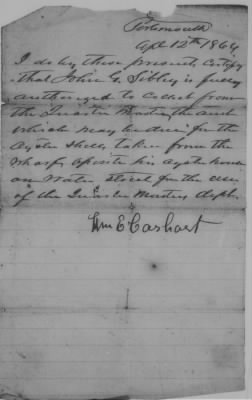 Portsmouth
Apl 12th 1864
I do by these presents certify
that John G. Sibley is fully
authorized to collect from
the Quarter Master the amt
which may be due for the
Oyster shells taken from the
wharf oposite his oyster house
on Water Street for the use
of the Quarter Masters dept.
Wm E Carhart